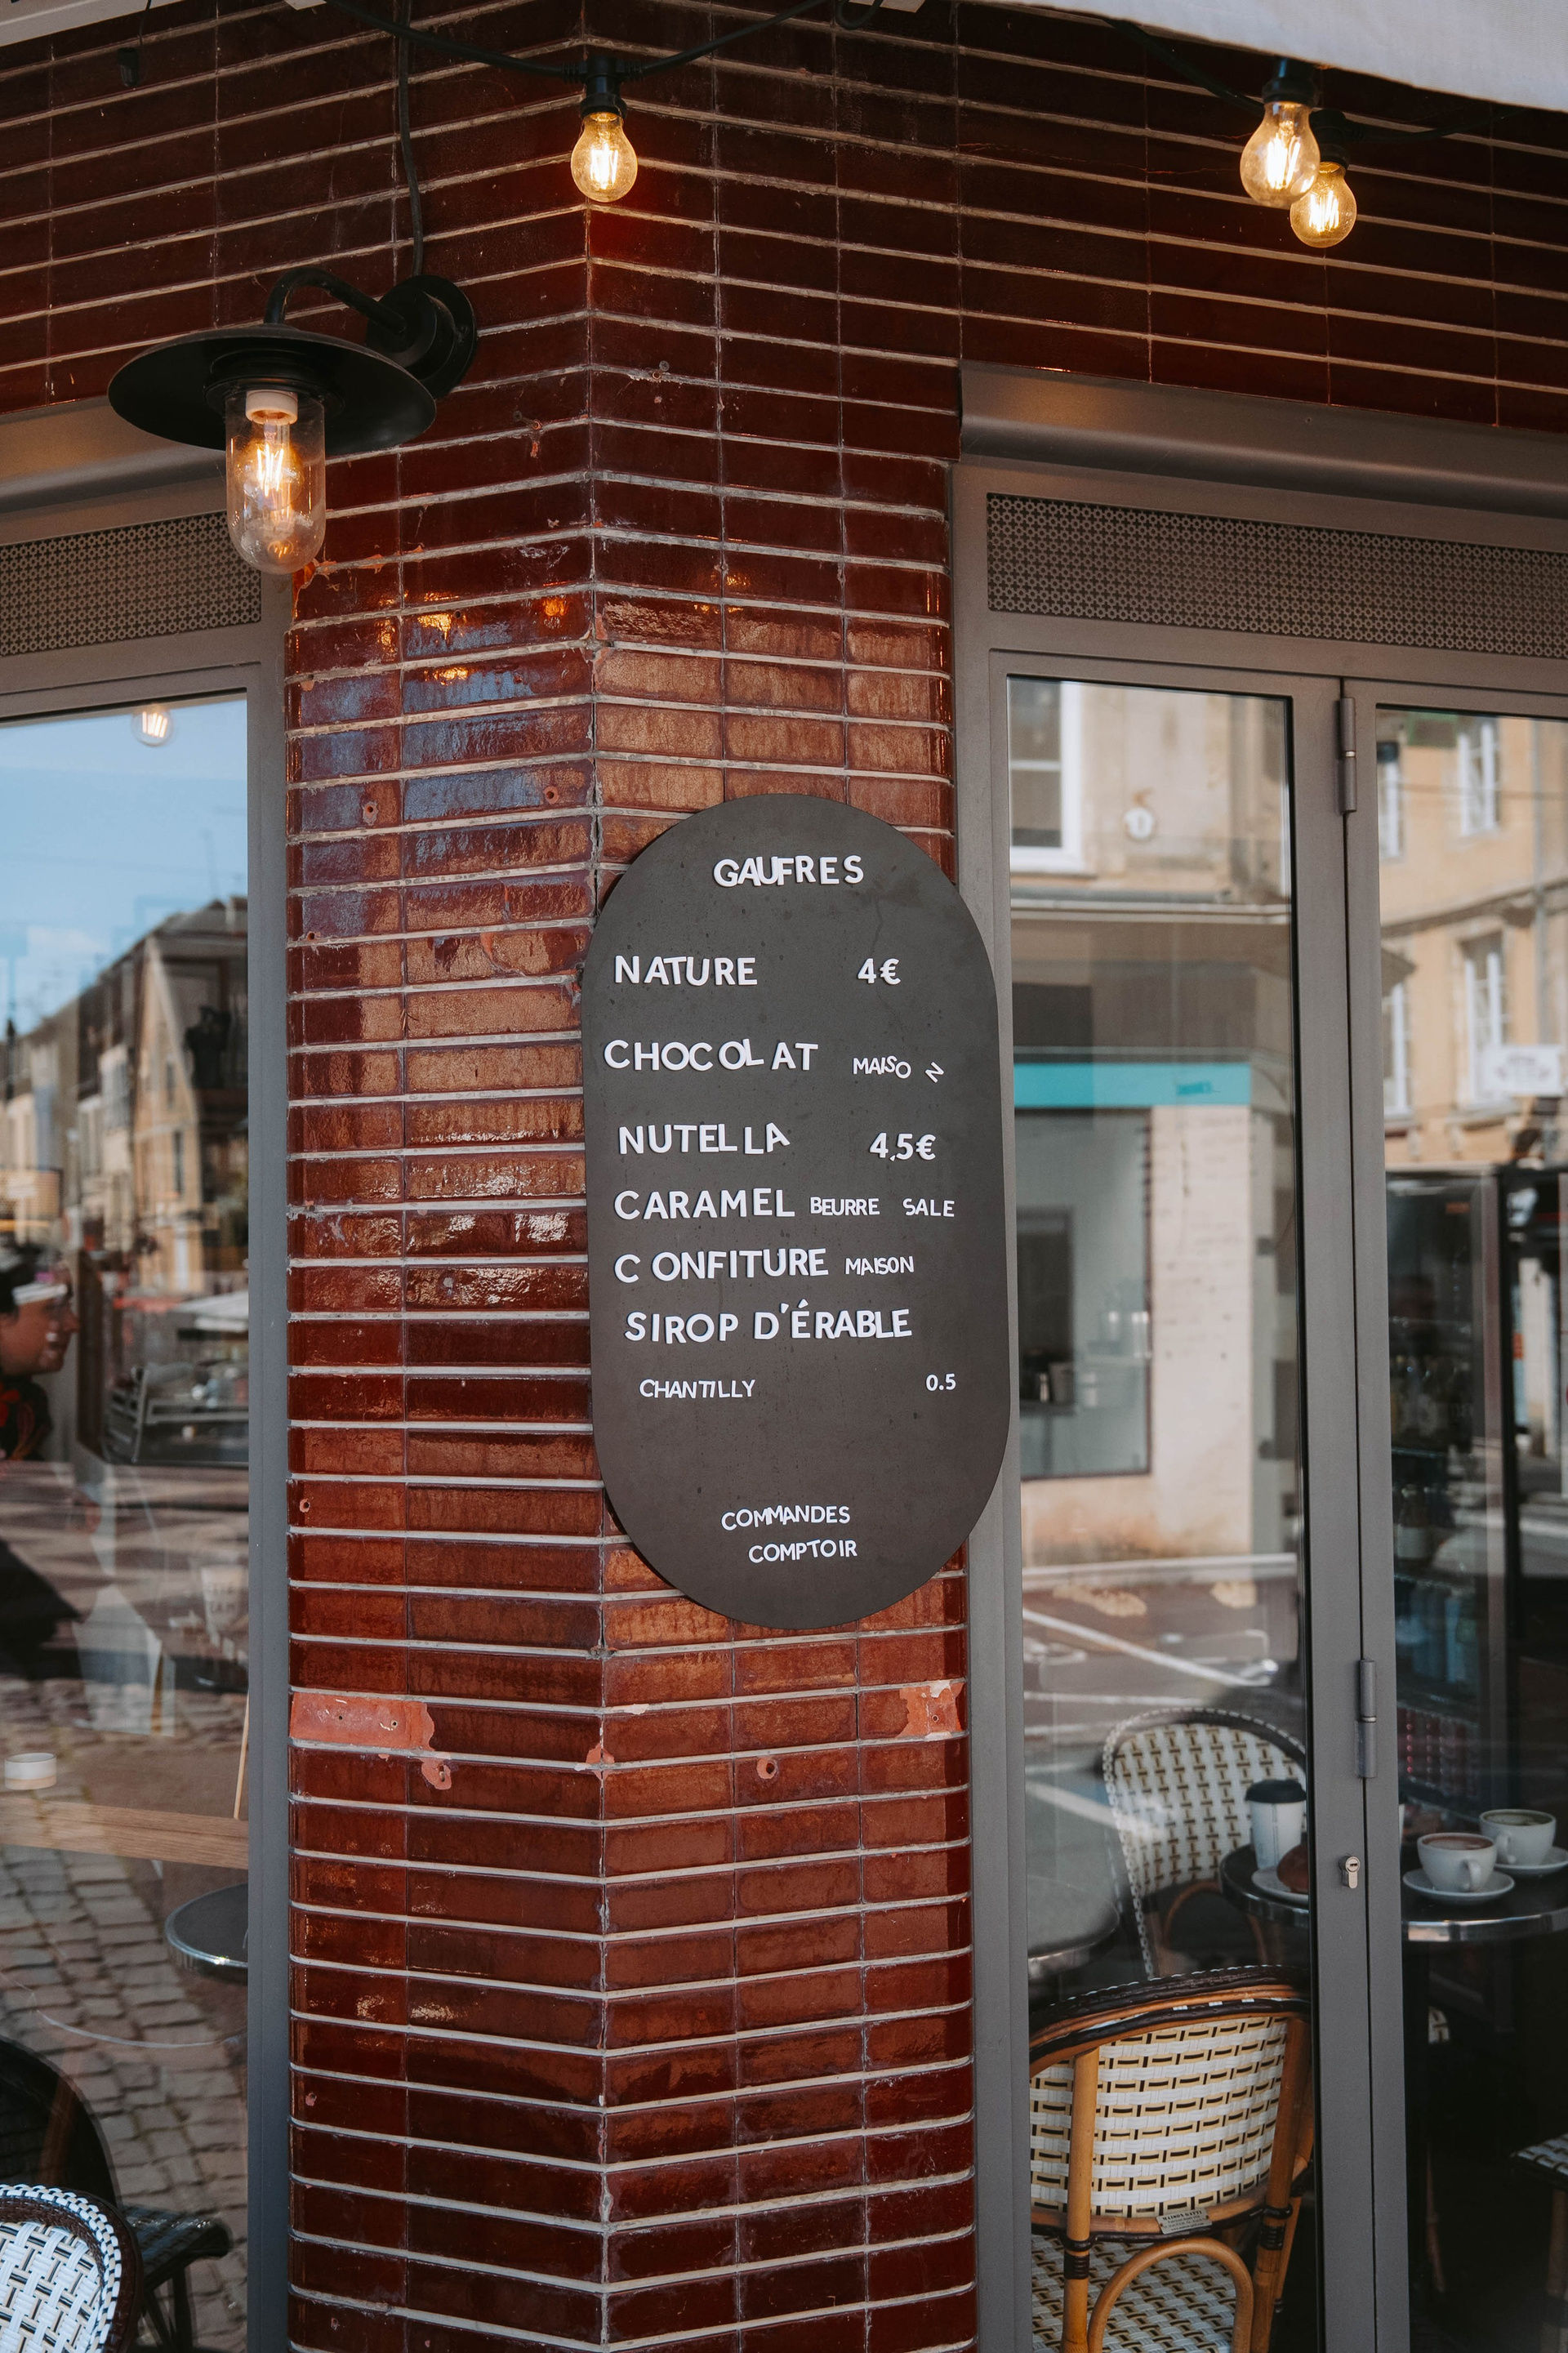 GAUFRES
NATURE 4€
CHOCOLAT MAISON
NUTELLA 4,5€
CARAMEL BEURRE SALE
CONFITURE MAISON
SIROP D'ÉRABLE
CHANTILLY 0.5
COMMANDES
COMPTOIR